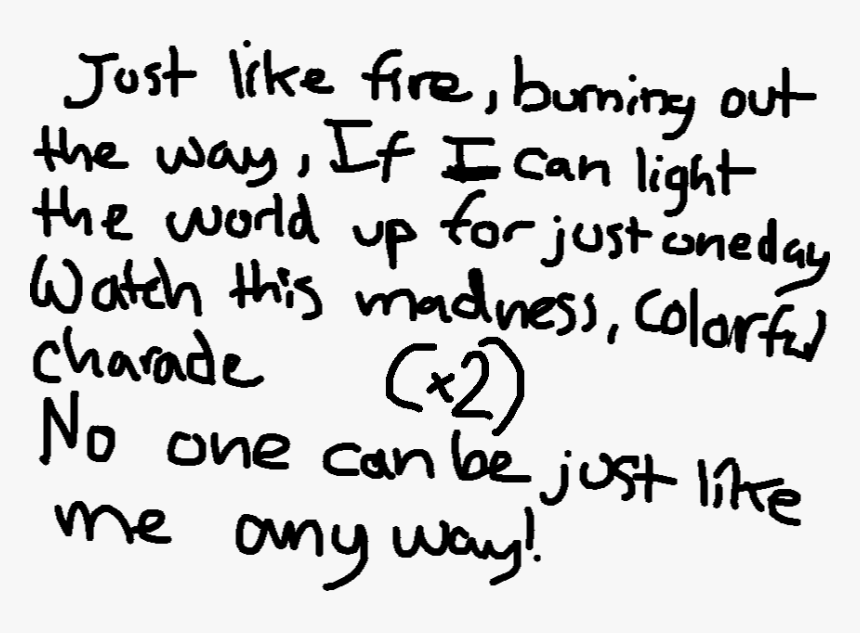 Just like fire, burning out
the way, If I can light
the world up for just one day
Watch this madness, Colorful
charade (x2)
No one can be just like
me any way!